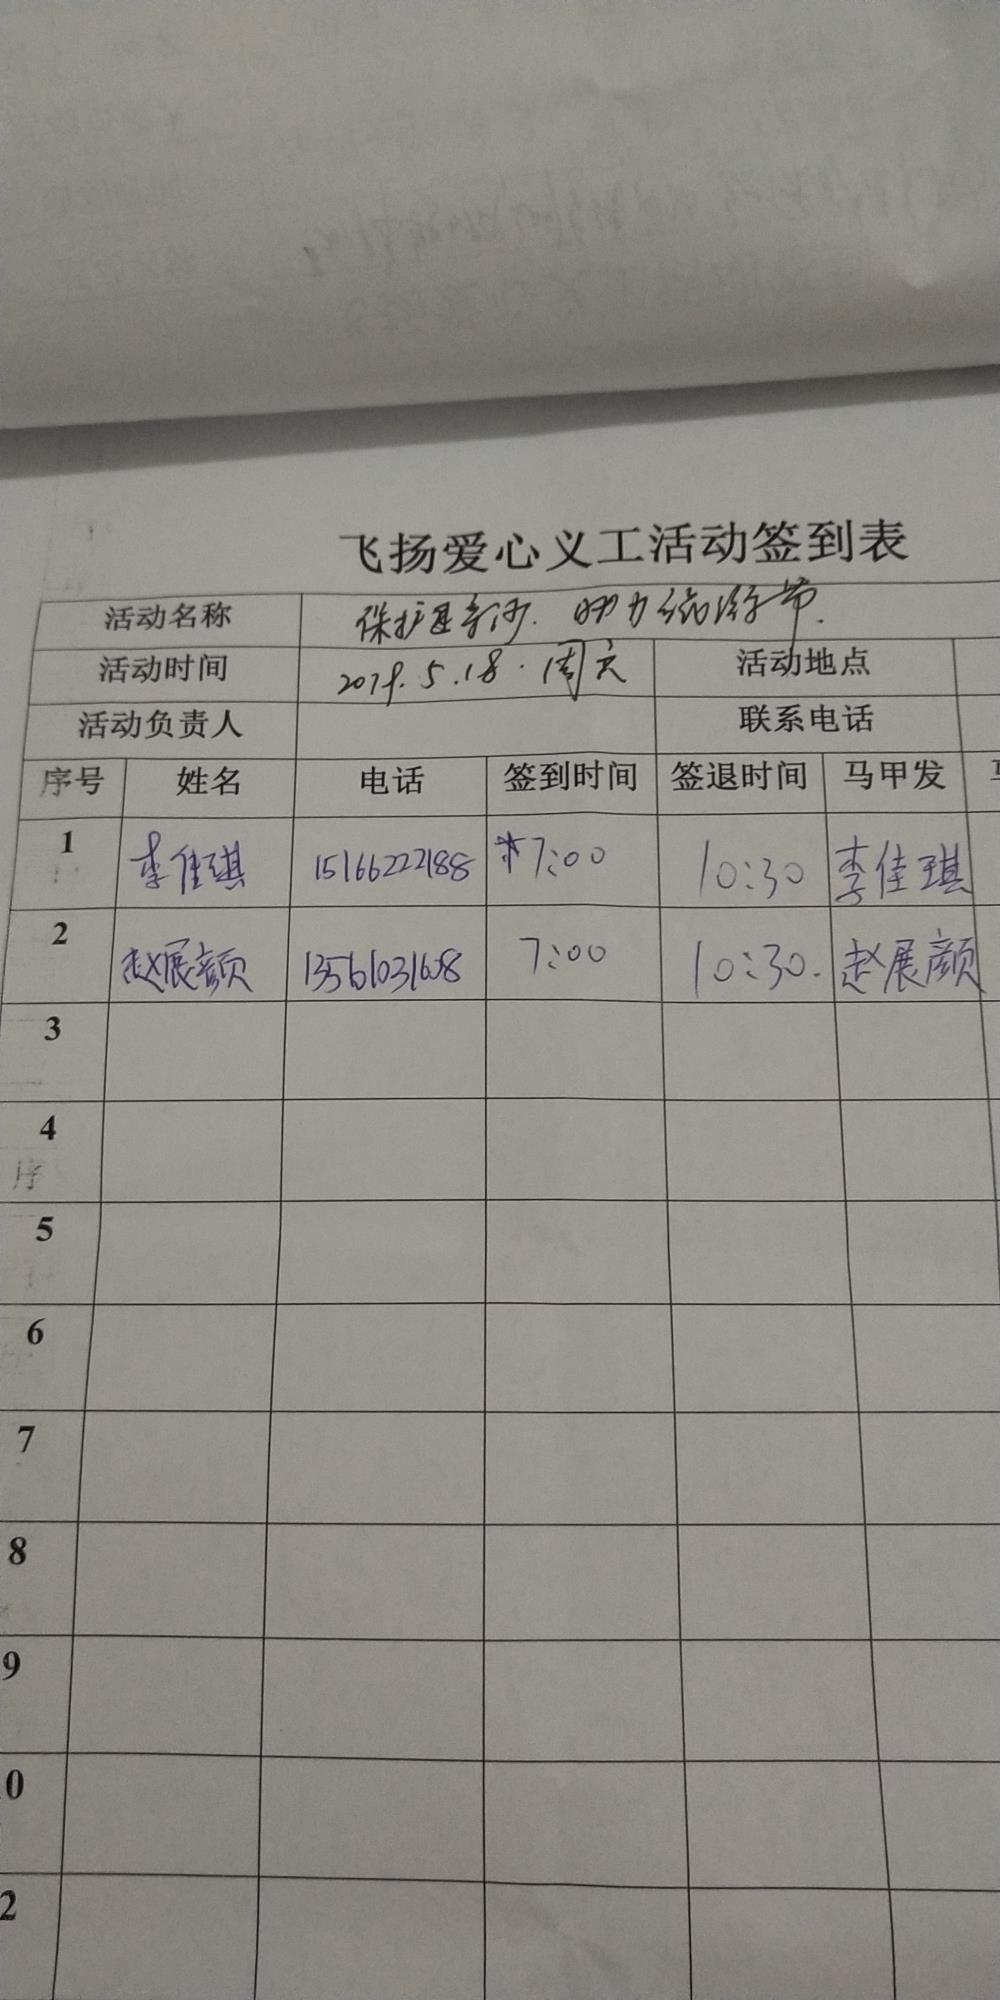 飞扬爱心义工活动签到表
活动名称 保护母亲河. 助力 节.
活动时间 2019.5.18.周六 活动地点
活动负责人 联系电话
序号 姓名 电话 签到时间 签退时间 马甲发
1 李佳琪 15166222188 7:00 10:30 李佳琪
2 赵展颜 13561031608 7:00 10:30. 赵展颜
3
4
序
5
6
7
8
9
0
2